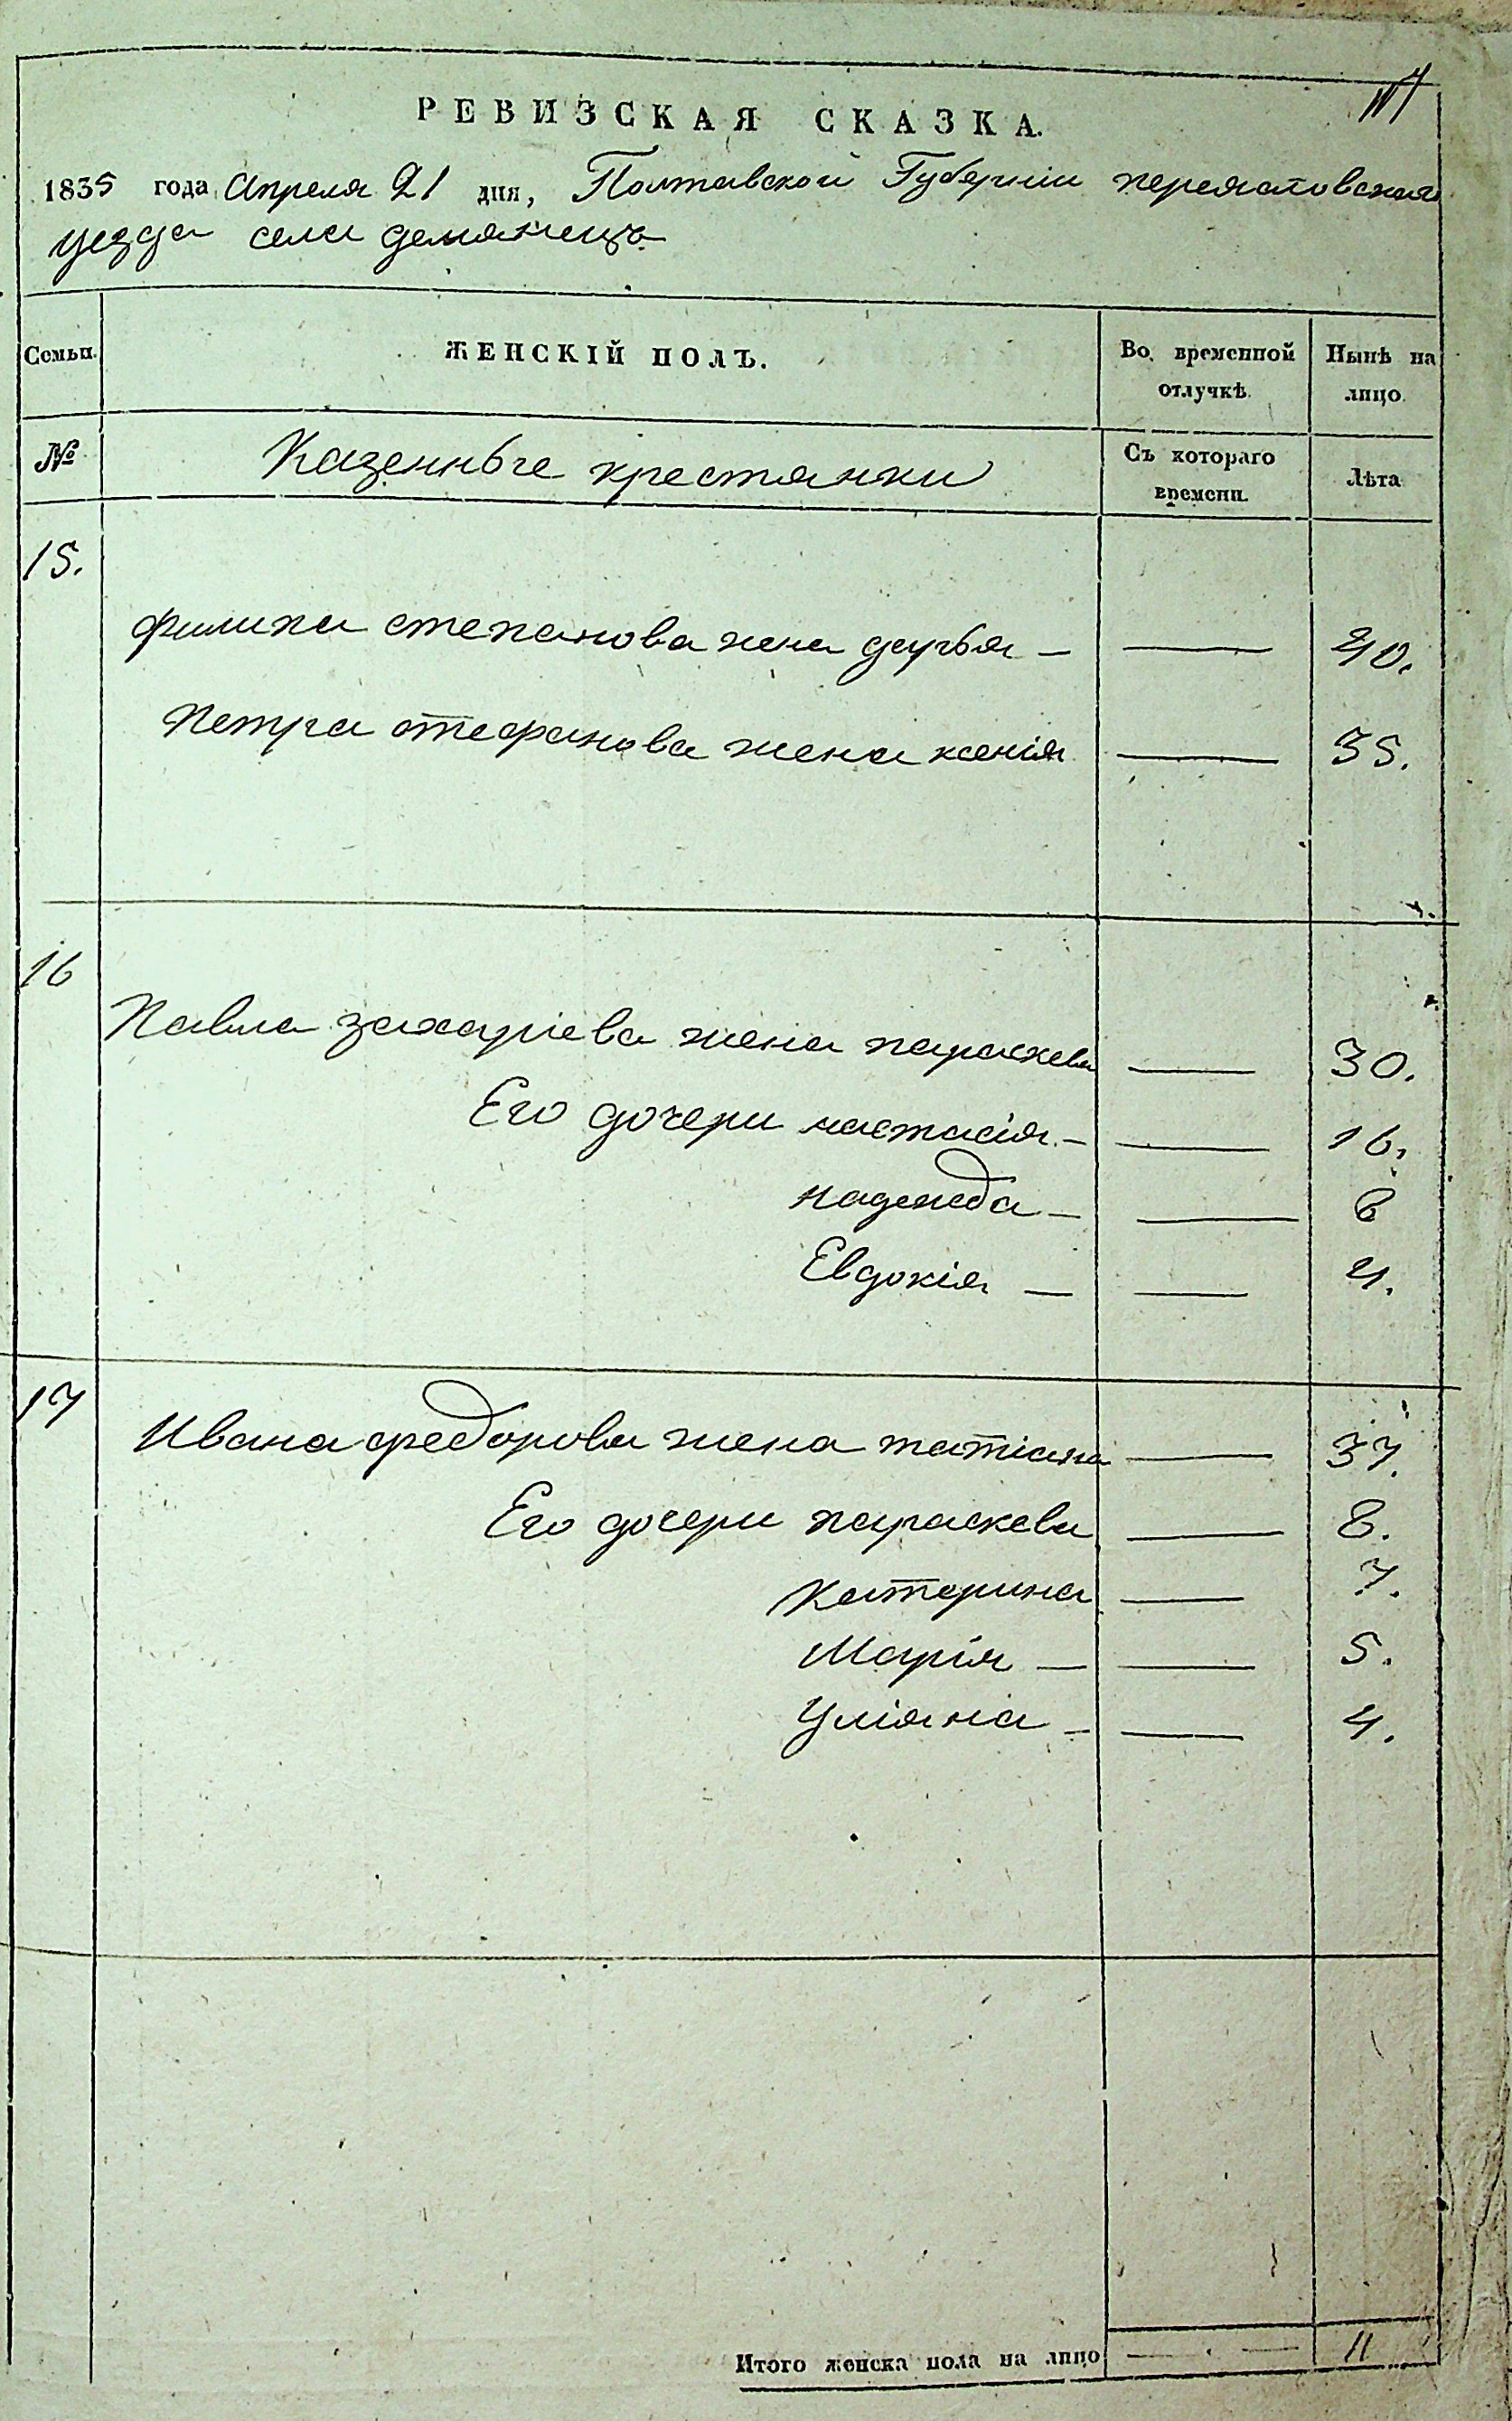 РЕВИЗСКАЯ СКАЗКА.
1835 года Апреля 21 дня, Полтавской Губерніи переясловскаго
уезда села демянецъ
Семьи. ЖЕНСКІЙ ПОЛЪ. Во временной отлучкѣ. Нынѣ на лицо.
№ Казенные крестянки Съ котораго времени. Лѣта
15.
филипа степанова жена — 40.
Петра стефанова жена ксенія — 35.
16
Павла захаріева жена параскева — 30.
Его дочери настасія — 16.
надежда — 8
Евдокія — 4.
17
Ивана федорова жена татіана — 37.
Его дочери параскева — 8.
Катерина — 7.
Марія — 5.
Уліяна — 4.
Итого женска пола на лицо — 11